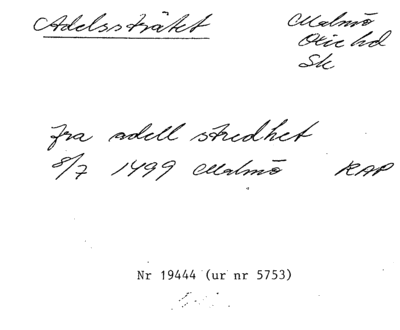 Adelssträtet
Malmö
Oxie hd
Sk
fra adell stredhet
8/7 1499 Malmö RAP
Nr 19444 (ur nr 5753)